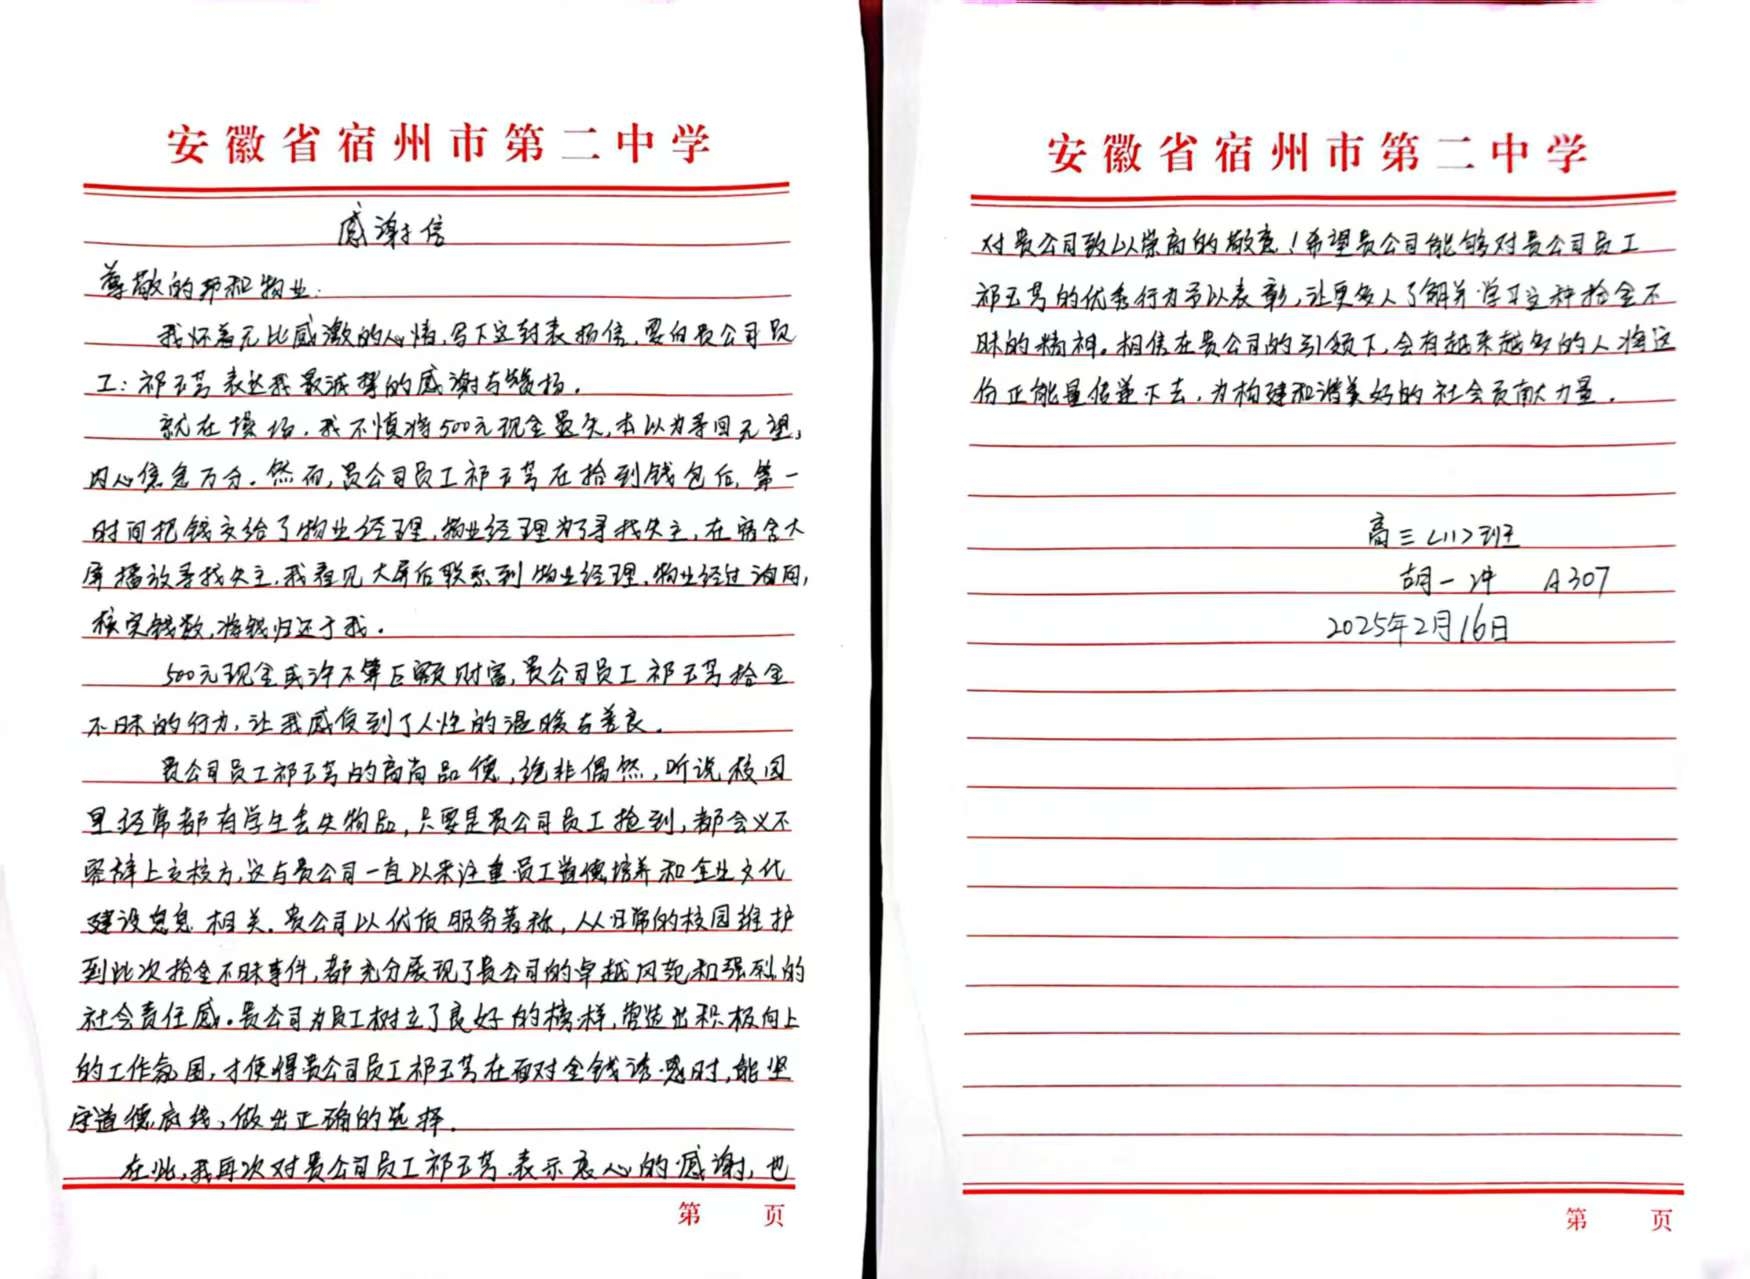 安徽省宿州市第二中学
感谢信
尊敬的邦和物业：
我怀着无比感激的心情，写下这封表扬信，要向贵公司员
工：祁玉芳表达我最诚挚的感谢与赞扬。
就在操场，我不慎将500元现金遗失，本以为寻回无望，
内心焦急万分。然而，贵公司员工祁玉芳在拾到钱包后，第一
时间把钱交给了物业经理，物业经理为了寻找失主，在宿舍大
屏播放寻找失主，我看见大屏后联系到物业经理，物业经过询问，
核实钱数，将钱归还于我。
500元现金或许不算巨额财富，贵公司员工祁玉芳拾金
不昧的行为，让我感受到了人性的温暖与善良。
贵公司员工祁玉芳的高尚品德，绝非偶然，听说校园
里经常都有学生丢失物品，只要是贵公司员工捡到，都会义不
容辞上交校方，这与贵公司一直以来注重员工道德培养和企业文化
建设息息相关。贵公司以优质服务著称，从日常的校园维护
到此次拾金不昧事件，都充分展现了贵公司的卓越风范和强烈的
社会责任感。贵公司为员工树立了良好的榜样，营造出积极向上
的工作氛围，才使得贵公司员工祁玉芳在面对金钱诱惑时，能坚
守道德底线，做出正确的选择。
在此，我再次对贵公司员工祁玉芳表示衷心的感谢，也
第 页
安徽省宿州市第二中学
对贵公司致以崇高的敬意！希望贵公司能够对贵公司员工
祁玉芳的优秀行为予以表彰，让更多人了解并学习这种拾金不
昧的精神。相信在贵公司的引领下，会有越来越多的人将这
份正能量传递下去，为构建和谐美好的社会贡献力量。
高三<11>班
胡一冲 A307
2025年2月16日
第 页